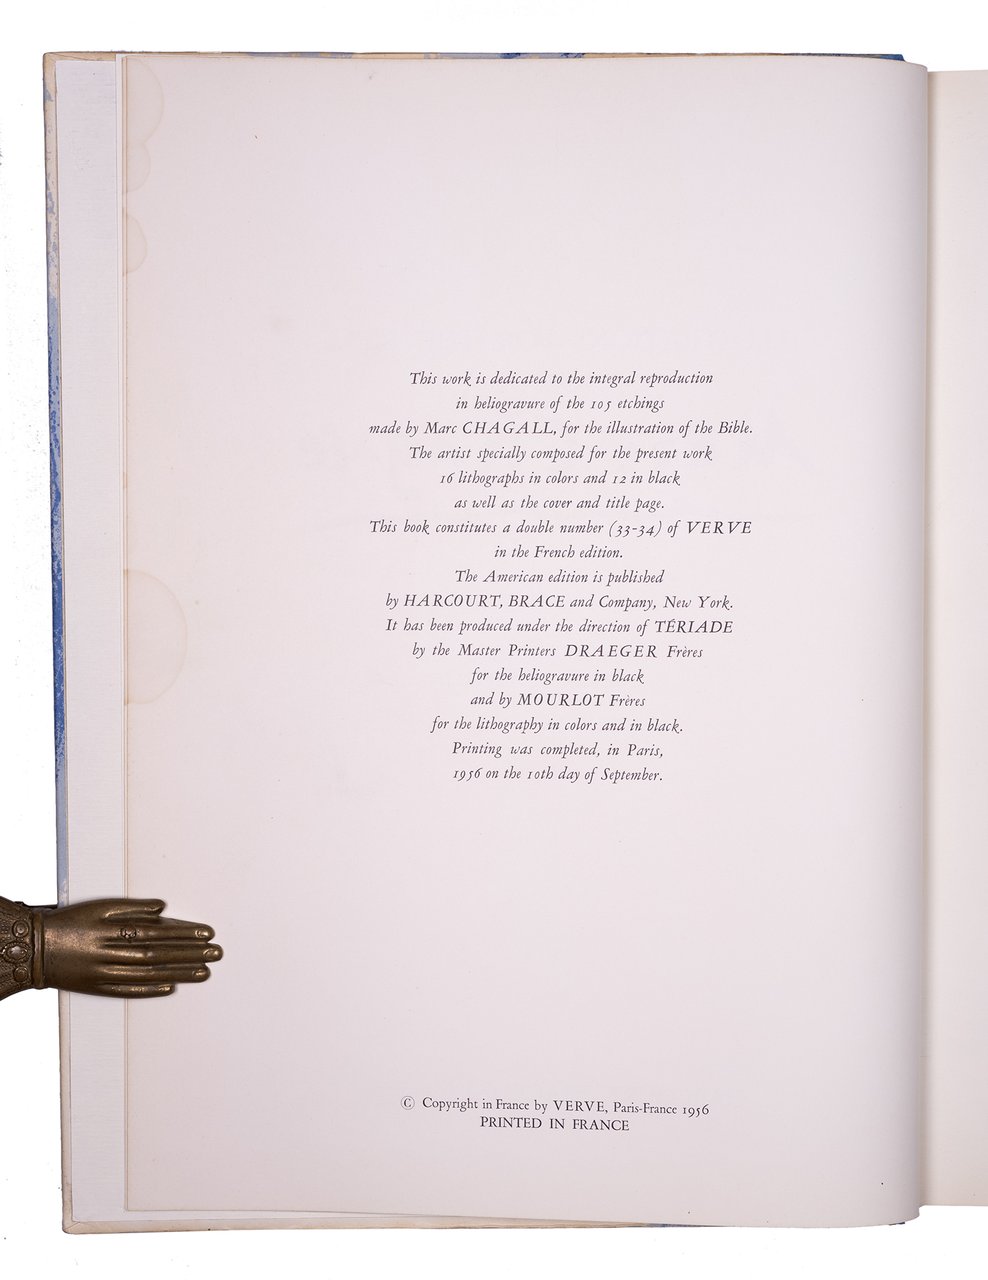 This work is dedicated to the integral reproduction
in heliogravure of the 105 etchings
made by Marc CHAGALL, for the illustration of the Bible.
The artist specially composed for the present work
16 lithographs in colors and 12 in black
as well as the cover and title page.
This book constitutes a double number (33-34) of VERVE
in the French edition.
The American edition is published
by HARCOURT, BRACE and Company, New York.
It has been produced under the direction of TÉRIADE
by the Master Printers DRAEGER Frères
for the heliogravure in black
and by MOURLOT Frères
for the lithography in colors and in black.
Printing was completed, in Paris,
1956 on the 10th day of September.
© Copyright in France by VERVE, Paris-France 1956
PRINTED IN FRANCE